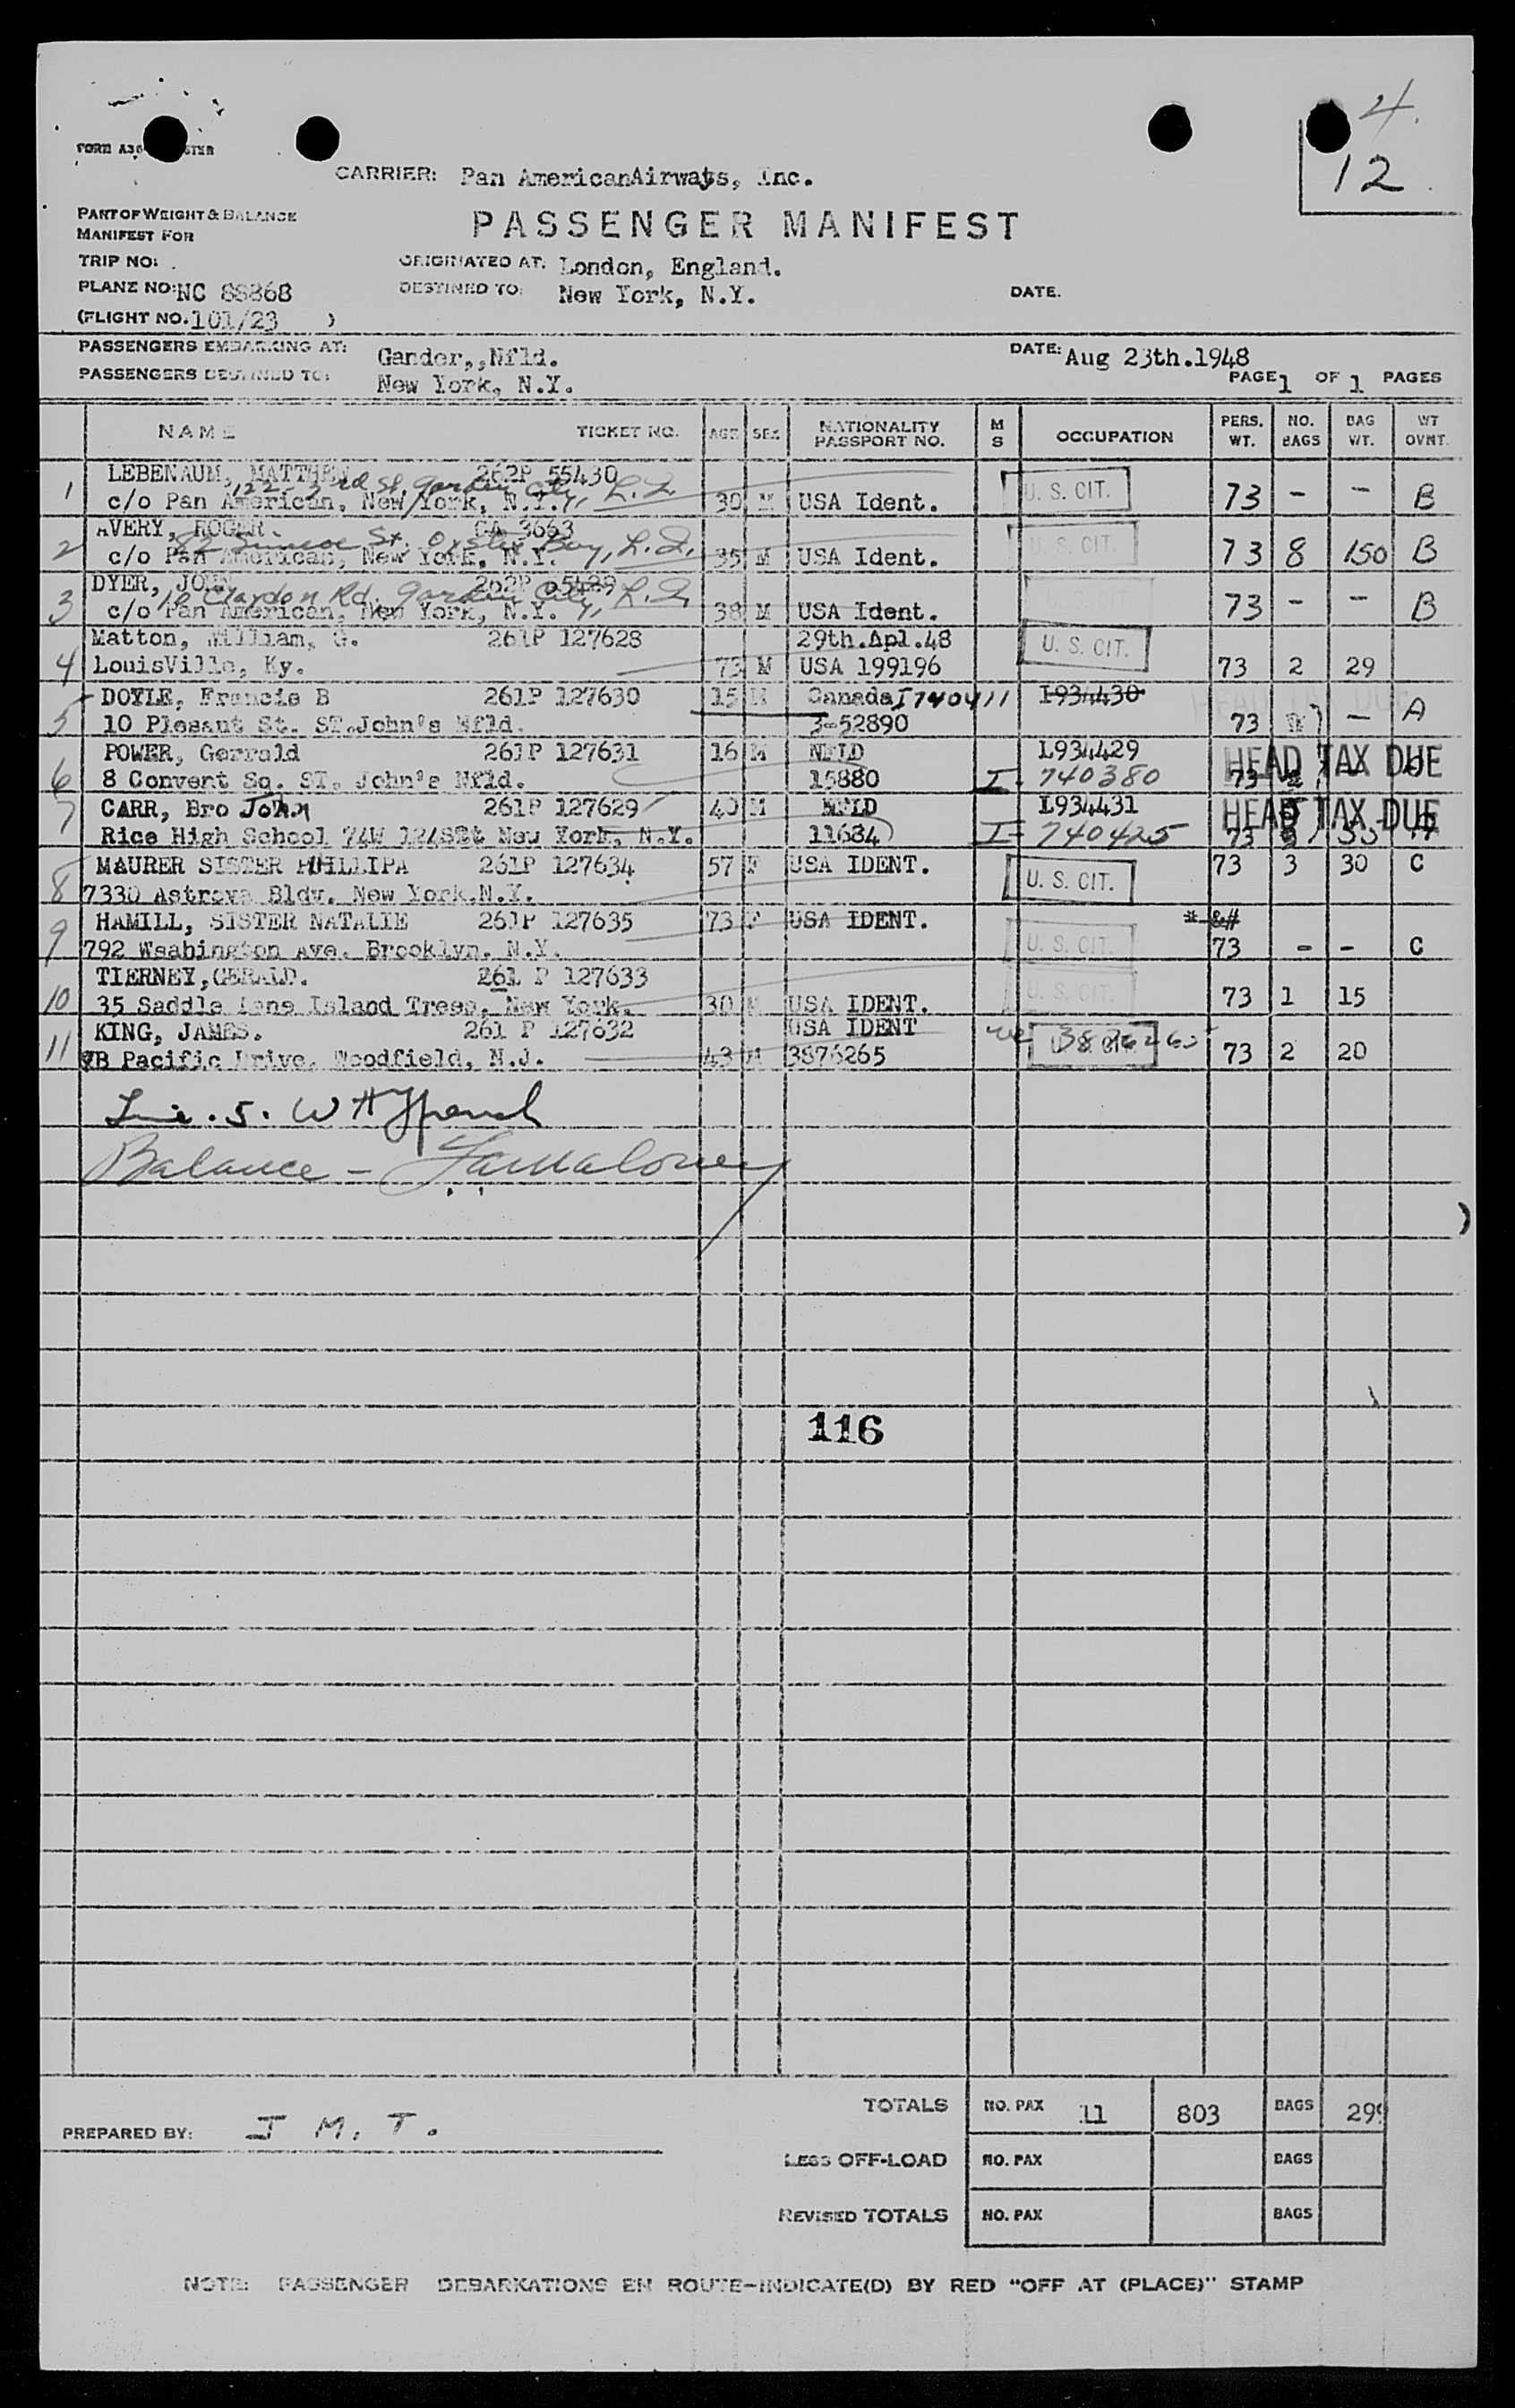 4.
12
FORM A3
CARRIER: Pan AmericanAirways, Inc.
PART OF WEIGHT & BALANCE
MANIFEST FOR
PASSENGER MANIFEST
TRIP NO:
ORIGINATED AT: London, England.
PLANE NO: NC 88868
DESTINED TO: New York, N.Y.
DATE.
(FLIGHT NO. 101/23 )
PASSENGERS EMBARKING AT: Gander,,Nfld.
DATE: Aug 23th.1948
PASSENGERS DESTINED TO: New York, N.Y.
PAGE 1 OF 1 PAGES
NAME TICKET NO. AGE SEX NATIONALITY PASSPORT NO. M S OCCUPATION PERS. WT. NO. BAGS BAG WT. WT OVNT.
LEBENAUM, MATTHEW 262P 55430
122 - 3rd St. Garden City, L.I.
1 c/o Pan American, New York, N.Y. 30 M USA Ident. U. S. CIT. 73 - - B
AVERY, ROGER. CA 3663
St. Oyster Bay, L.I.
2 c/o Pan American, New York, N.Y. 35 M USA Ident. U. S. CIT. 73 8 150 B
DYER, JOHN 262P 55429
10 Claydon Rd. Garden City, L.I.
3 c/o Pan American, New York, N.Y. 38 M USA Ident. U. S. CIT. 73 - - B
Matton, William, G. 261P 127628 29th.Apl.48 U. S. CIT.
4 LouisVille, Ky. 73 M USA 199196 73 2 29
DOYLE, Francis B 261P 127630 15 M Canada I740411 I934430
5 10 Plesant St. ST.John's Nfld. 3-52890 73 - A
HEAD TAX DUE
POWER, Gerrald 261P 127631 16 M NFLD L934429 HEAD TAX DUE
6 8 Convent Sq. ST. John's Nfld. 15880 I- 740380 73
CARR, Bro John 261P 127629 40 M NFLD L934431 HEAD TAX DUE
7 Rice High School 74W 124StSt New York, N.Y. 11684 I- 740425 73
MAURER SISTER PHILLIPA 261P 127634 57 F USA IDENT. U. S. CIT. 73 3 30 C
8 7330 Astrova Bldv. New York.N.Y.
HAMILL, SISTER NATALIE 261P 127635 73 F USA IDENT.
9 792 Waahington Ave. Brooklyn, N.Y. U. S. CIT. 73 - - C
TIERNEY,GERALD. 261 P 127633
10 35 Saddle Lane Island Trees, New York. 30 M USA IDENT. U. S. CIT. 73 1 15
KING, JAMES. 261 P 127632 USA IDENT
11 7B Pacific Drive, Woodfield, N.J. 43 M 3876265 U. S. CIT. 3876265 73 2 20
Balance -
116
TOTALS NO. PAX 11 803 BAGS 299
PREPARED BY: J M. T.
LESS OFF-LOAD NO. PAX BAGS
REVISED TOTALS NO. PAX BAGS
NOTE: PASSENGER DEBARKATIONS EN ROUTE-INDICATE(D) BY RED "OFF AT (PLACE)" STAMP